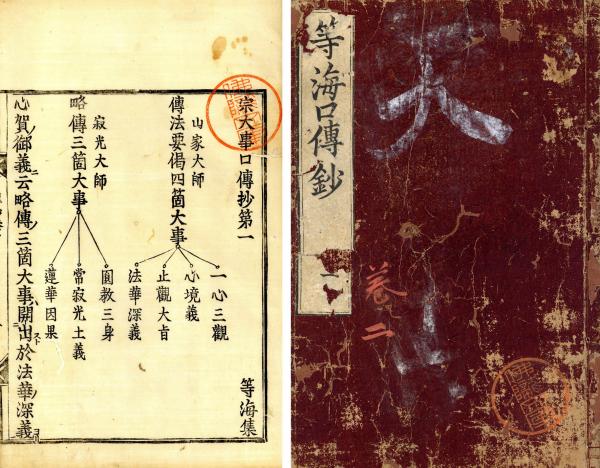 等海口傳鈔
天
卷二
宗大事口傳抄第一
等海集
山家大師
傳法要偈四箇大事
一心三觀
心境義
止觀大旨
法華深義
寂光大師
略傳三箇大事
圓教三身
常寂光土義
蓮華因果
心賀御義云略傳三箇大事開出於法華深義